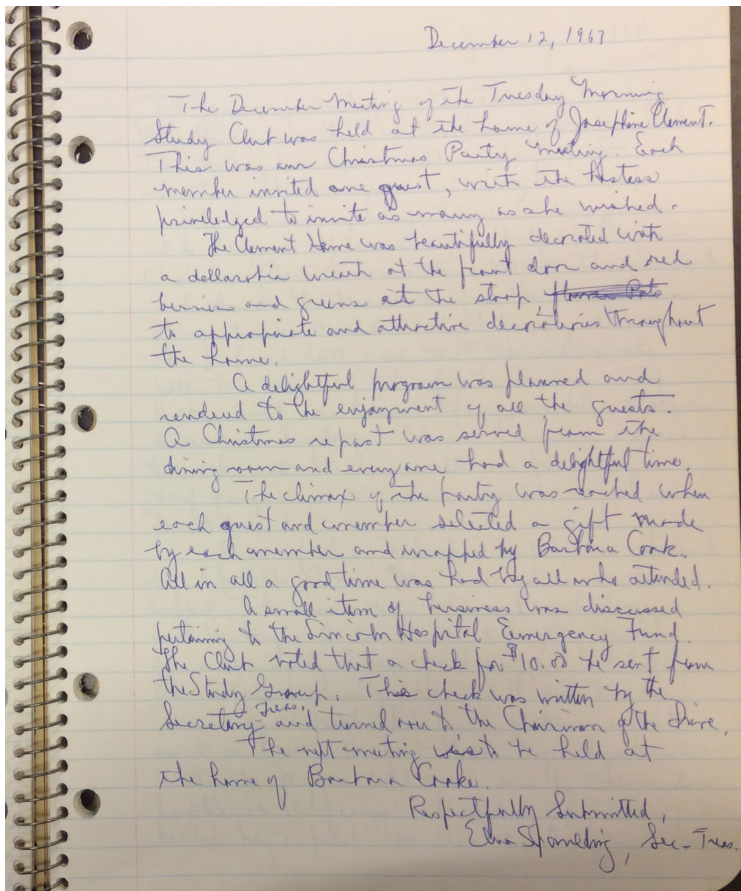 December 12, 1967
The December Meeting of the Tuesday Morning
Study Club was held at the home of Josephine Clement.
This was our Christmas Party Meeting. Each
member invited one guest, with the hostess
priviledged to invite as many as she wished.
The Clement Home was beautifully decorated with
a wreath at the front door and red
berries and greens at the stoop
to appropriate and attractive decorations throughout
the home.
A delightful program was planned and
rendered to the enjoyment of all the guests.
A Christmas repast was served from the
dining room and everyone had a delightful time.
The climax of the party was reached when
each guest and member selected a gift made
by each member and wrapped by Barbara Cook.
All in all a good time was had by all who attended.
A small item of business was discussed
pertaining to the Lincoln Hospital Emergency Fund.
The Club voted that a check for $10.00 be sent from
the Study Group. This check was written by the
Secretary-Treas. and turned over to the Chairman of the Drive.
The next meeting is to be held at
the home of Barbara Cooke.
Respectfully Submitted,
Elna Spaulding, Sec-Treas.